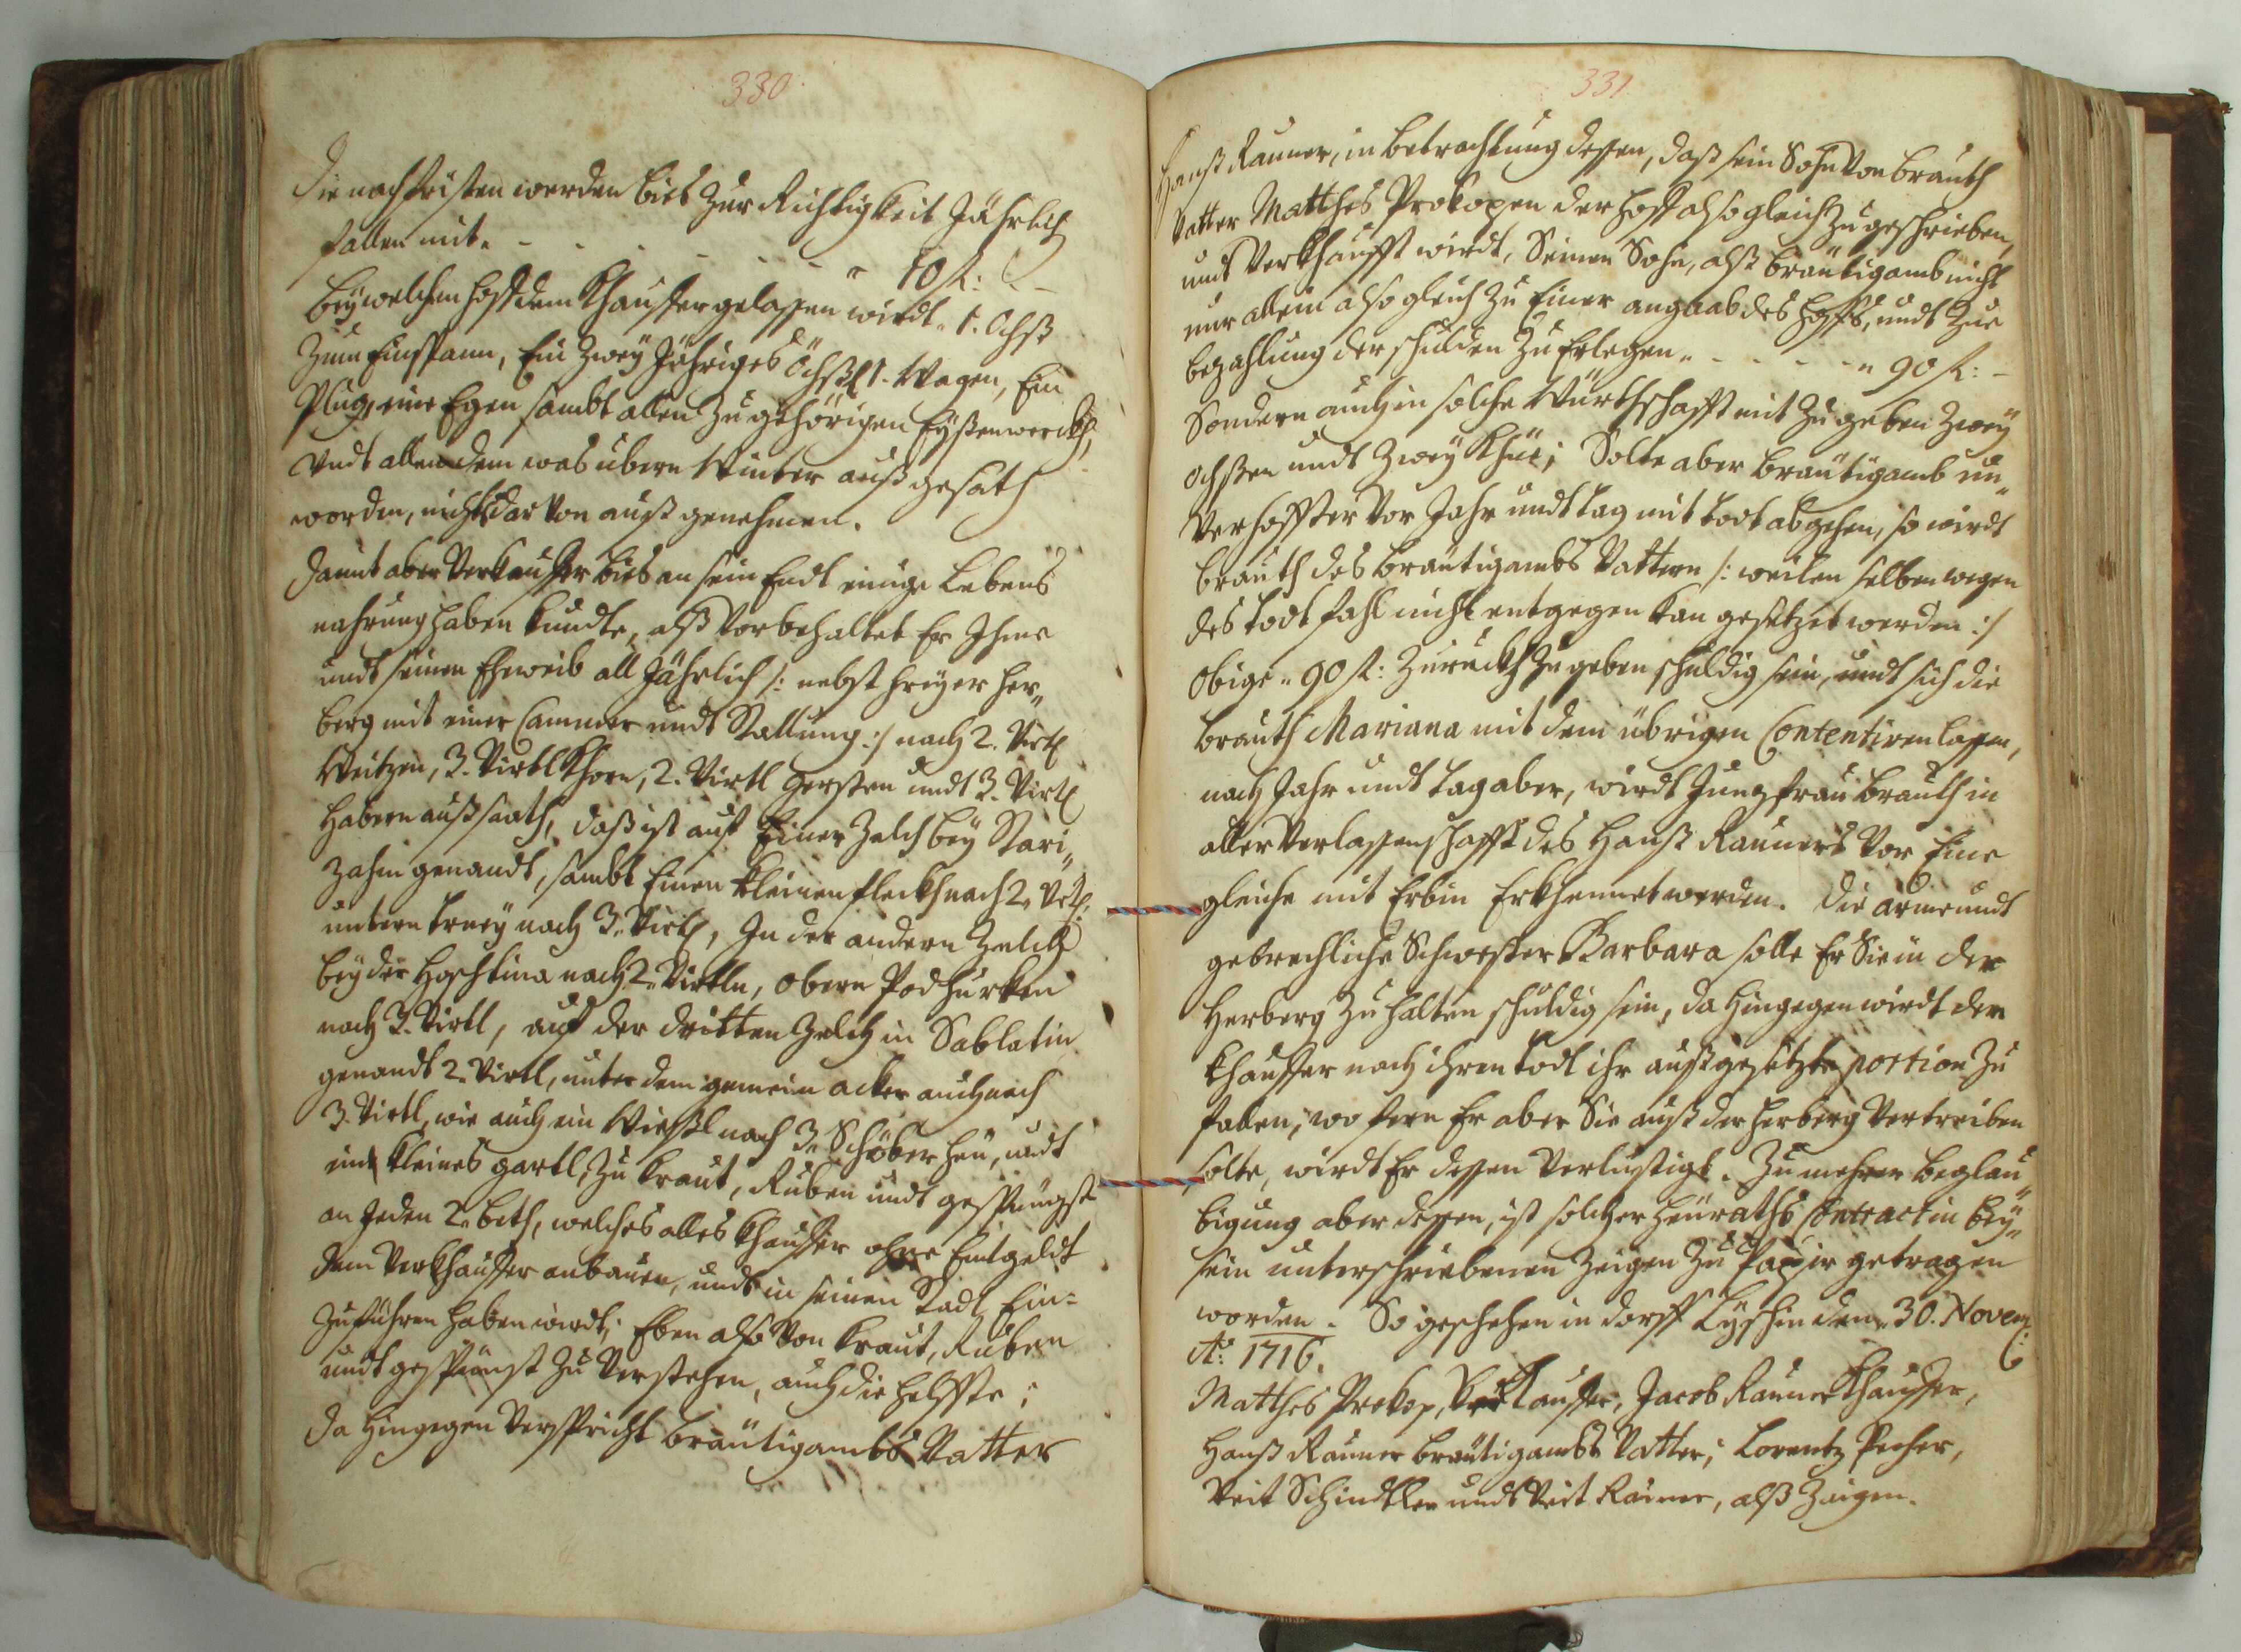 330
Die nachfristen werden bies zur Richtigkeit Jährlich
fallen mit. - - - - - " 10 fl: -
Beÿ welchen hoff dem Khauffer gelassen wirdt " 1. Ochß
zum Einspann, Ein zweÿ Jähriges Öchßl 1. Wagen, Ein
Plug, eine Egen sambt allen zu gehörigen Eÿßenwerckh,
undt allen dem was übern Winter auß gesäth
worden, nichts dar von auß genohmen.
Damit aber Verkauffer bies an sein Endt einige Lebens
nahrung haben kundte, alß vorbehaltet Er Ihme
undt seinen Eheweib all Jährlich /: nebst freÿer Her„
berg mit einer Cammer undt Stallung :/ nach 2. Virtl
Weitzen, 3. Virtl Khorn, 2. Virtl Gersten undt 3. Virtl
Habern außsaath, daß ist auf Einer Zelch beÿ Stari„
zahm genandt, sambt Einen kleinen fleckh nach 2. Vrtl:
untern nach 3. Virtl, In der andern Zelch
beÿ der Hoschtina nach 2. Virtln, Obern Podhurken
nach 3. Virtl, auf der dritten Zelch in Sablatin
genandt 2. Virtl, unter dem gemein acker auch nach
3. Virtl, wie auch ein Wießl nach 3. Schöber heu, undt
ein kleines gartl, zu Kraut, Ruben undt gespüngst
an Jeden 2. beth, welches alles Khauffer ohne Entgeldt
dem Verkhauffer anbauen, undt in seinen Stadl Ein=
zuführen haben wirdt; Eben also von Kraut, Ruben
undt gespünst zu verstehen, auch die helffte;
Da hingegen verspricht bräutigambs Vatter
331
Hanß Rauner, in betrachtung dessen, daß sein Sohn von brauth
Vatter Matthes Prokopen der hoff also gleich zu geschrieben,
undt verkhaufft wirdt, Seinen Sohn, alß bräutigamb nicht
nur allein also gleich zu Einer angaab des hoffs, undt zue
bezahlung der schulden zu Erlegen " - - - - " 90 fl: -
Sondern auch in solche Würthschafft mit zu geben zweÿ
Ochßen undt zweÿ Khüe; Solte aber bräutigamb un„
verhoffter vor Jahr undt tag mit todt abgehen, so wirdt
brauth des bräutigambs Vattern /: weilen selben wegen
des todtfahl nicht entgegen kan gesetzet werden :/
Obige " 90 fl: Zuruckh zu geben schuldig sein, undt sich die
brauth Mariana mit dem übrigen Contentiren lassen,
nach Jahr undt tag aber, wirdt Jungfrau brauth in
aller Verlassenschafft des Hanß Rauners vor Eine
gleiche mit Erbin Erkhennet werden. Die arme undt
gebrechliche Schwester Barbara solle Er Sie in der
Herberg zu halten schuldig sein, da hingegen wirdt der
Khauffer nach ihren todt ihr außgesetzte portion zu
haben; wo fern Er aber Sie auß der Herberg vertreiben
solte, wirdt Er dessen Verlustigt. Zu mehrer beglau„
bigung aber dessen, ist solcher heuraths Contract in beÿ„
sein unterschriebenen Zeigen zu Papier getragen
worden. So geschehen in dorff Lyschin den 30. Novem:
Aō: 1716.
Matthes Prokop, Verkauffer, Jacob Rauner Khauffer,
Hanß Rauner bräutigambs Vatter; Lorentz Pecher,
Veit Schindtler undt Veit Rainer, alß Zeigen.